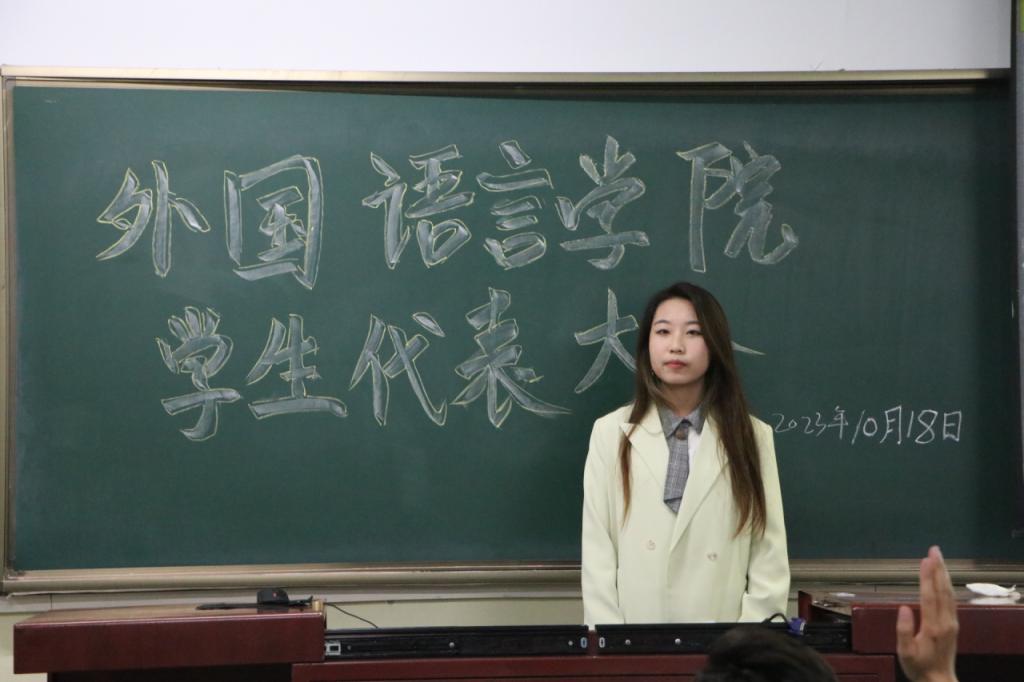 外国语言学院
学生代表大
2023年10月18日